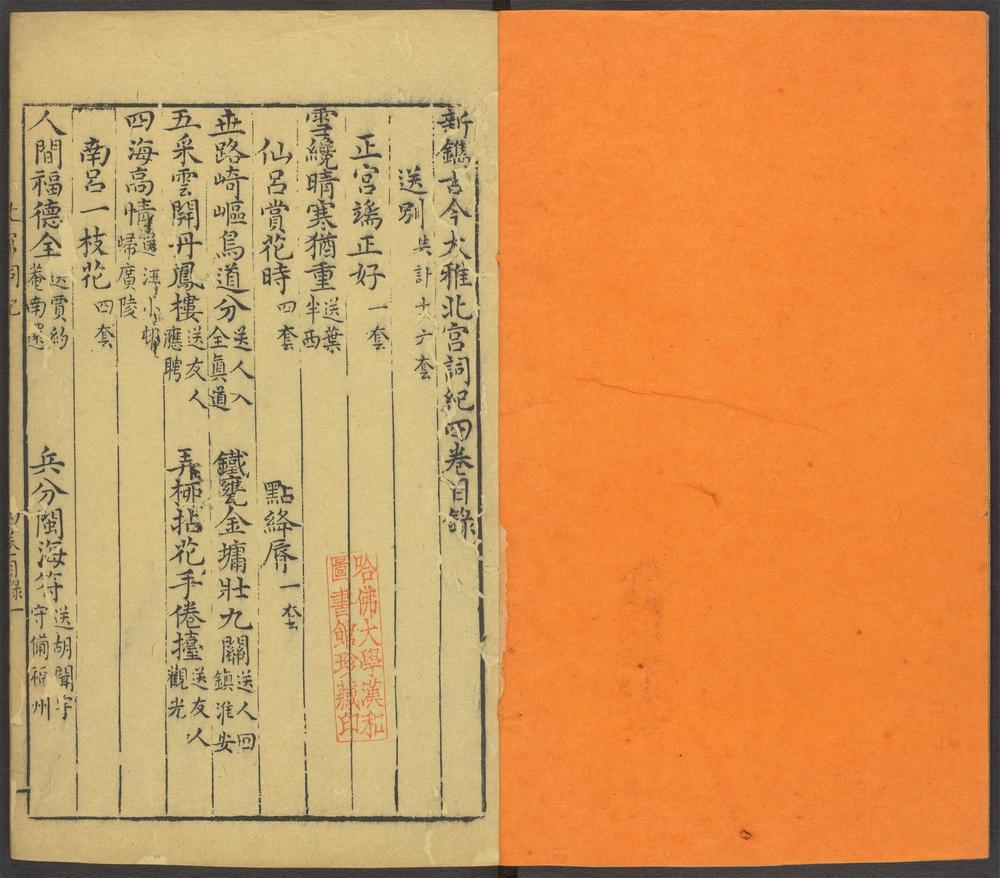 新鐫古今大雅北宮詞紀四卷目錄
送別 共計 套
正宮端正好 一套
雪纔晴寒猶重 送葉半西
仙呂賞花時 四套 點絳脣 一套
世路崎嶇鳥道分 送人入全真道 鐵甕金墉壯九關 送人回鎮淮安
五采雲開丹鳳樓 送友人應聘 弄柳拈花手倦擡 送友人觀光
四海高情 送汪小村歸廣陵
南呂一枝花 四套
人間福德全 送賈約菴南還 兵分閩海符 送胡聞宇守備福州
北宮詞紀 四卷目錄 一
哈佛大學漢和圖書館珍藏印